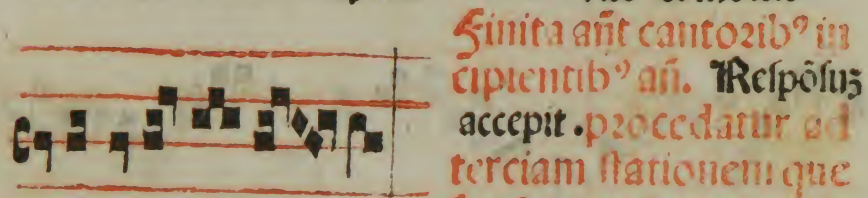 Finita añt cantoꝛibꝰ in
cipientibꝰ añ. Reſpõſuꝫ
accepit .pꝛocedatur ad
terciam ſtationem que